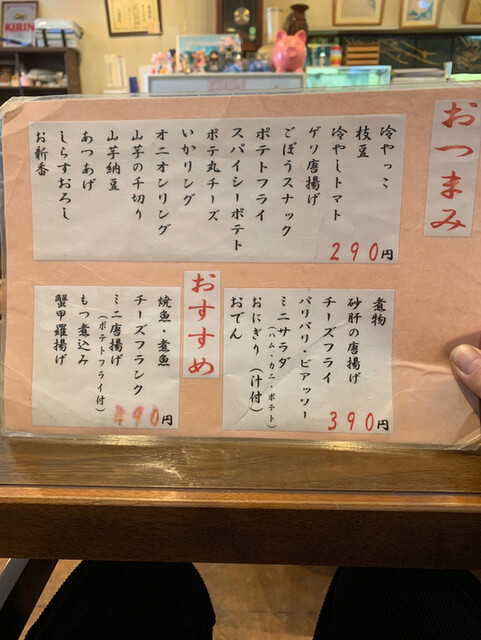 おつまみ
冷やっこ
枝豆
冷やしトマト
ゲソ唐揚げ
ごぼうスナック
ポテトフライ
スパイシーポテト
ポテ丸チーズ
いかリング
オニオンリング
山芋の千切り
山芋納豆
あつあげ
しらすおろし
お新香
290円
煮物
砂肝の唐揚げ
チーズフライ
パリパリ・ピアッソー
ミニサラダ
(ハム・カニ・ポテト)
おにぎり(汁付)
おでん
390円
おすすめ
焼魚・煮魚
チーズフランク
ミニ唐揚げ
(ポテトフライ付)
もつ煮込み
蟹甲羅揚げ
490円
KIRIN